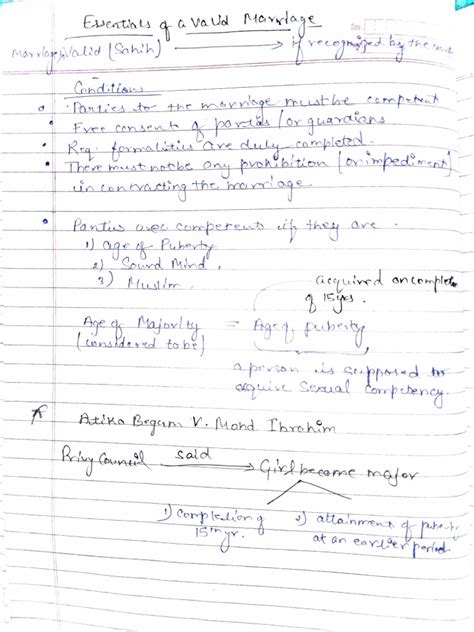 Essentials of a Valid Marriage
Marriage Valid (Sahih) → if recognized by the
Conditions
• Parties to the marriage must be competent
• Free consent of parties / or guardians
• Req. formalities are duly completed.
• There must not be any prohibition (or impediment)
in contracting the marriage.
• Parties are competent if they are
1) Age of Puberty
2) Sound Mind.
3) Muslim.
acquired on complete
of 15 yrs.
Age of Majority = Age of puberty
(considered to be)
a person is supposed to
acquire Sexual Competency.
Atika Begum V. Mohd Ibrahim
Privy Council said → Girl become major
1) Completion of
15th yr.
2) attainment of puberty
at an earlier period